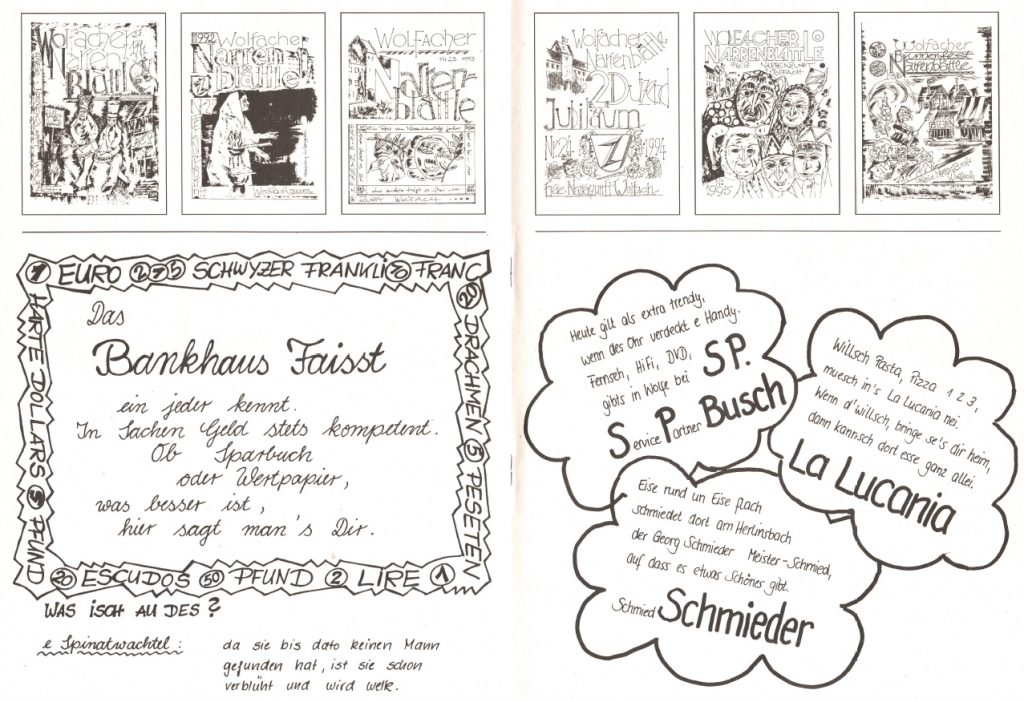 Wolfacher
Narren-
blättle
1992 Wolfacher
Narren
blättle
WOLFACHER
Nr. 23 1993
Narren-
blättle
WOLFACH
Wolfacher
Narrenblättle
2 Dutzed
Jubiläum
Nr 24 1994
Freie Narrenzunft Wolfach
WOLFACHER
NARRENBLÄTTLE
1995
Wolfacher
Narrenblättle
1 EURO 275 SCHWYZER FRANKLI 8 FRANC
20 DRACHMEN 5 PESETEN
HARTE DOLLARS 5 PFUND
20 ESCUDOS 50 PFUND 2 LIRE 1
Das
Bankhaus Faisst
ein jeder kennt.
In Sachen Geld stets kompetent.
Ob Sparbuch
oder Wertpapier,
was besser ist,
hier sagt man's Dir.
WAS ISCH AU DES?
e Spinatwachtel:
da sie bis dato keinen Mann
gefunden hat, ist sie schon
verblüht und wird welk.
Heute gilt als extra trendy,
wenn des Ohr verdeckt e Handy.
Fernseh, HiFi, DVD,
gibts in Wolfe bei SP.
Service Partner Busch
Willsch Pasta, Pizza 1 2 3,
muesch in's La Lucania nei.
Wenn d'willsch, bringe se's dir heim,
dann kannsch dort esse ganz allei.
La Lucania
Eise rund un Eise flach
schmiedet dort am Herlinsbach
der Georg Schmieder Meister-Schmied,
auf dass es etwas Schönes gibt.
Schmied Schmieder